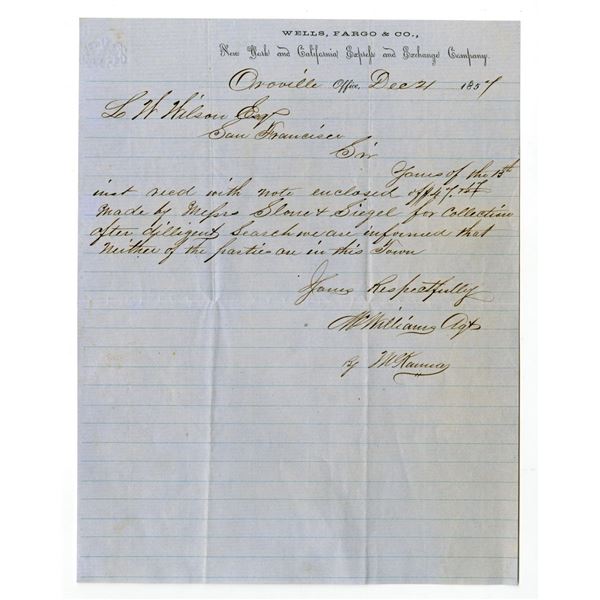 WELLS, FARGO & CO.,
New York and California Express and Exchange Company.
Oroville Office, Dec 21 1857
L W Wilson Esq
San Francisco
Sir
Yours of the 13th
inst recd with note enclosed of
made by Messrs & Siegel for Collection
after dilligent Search we are informed that
Neither of the parties are in this Town
Yours Respectfully
Williams Agt